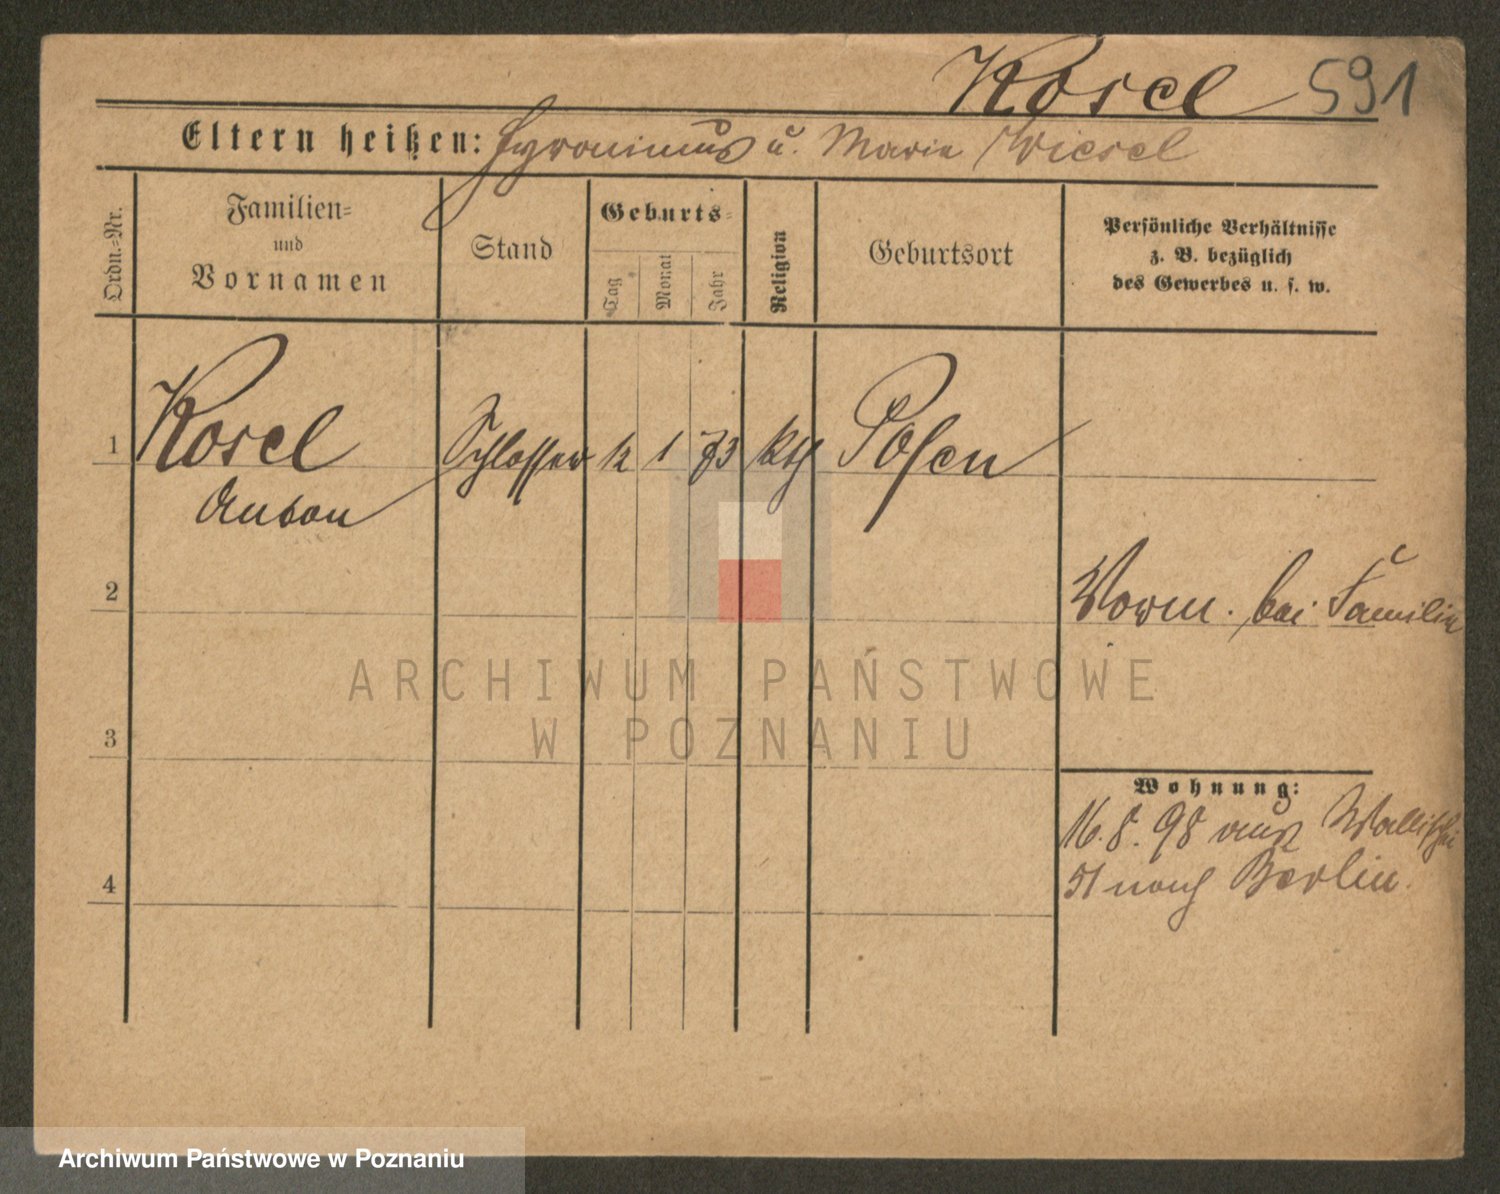 Kosel 591
Eltern heißen: Hyronimus u. Marie Wiesel
Ordn.-Nr.
Familien-
und
Vornamen
Stand
Geburts-
Tag
Monat
Jahr
Religion
Geburtsort
Persönliche Verhältnisse
z. B. bezüglich
des Gewerbes u. s. w.
1 Kosel Schlosser 12 1 73 kth Posen
Anton
2
Vorm. bei Familie
3
Wohnung:
16.8.98 aus Wallischei
51 nach Berlin.
4
ARCHIWUM PAŃSTWOWE
W POZNANIU
Archiwum Państwowe w Poznaniu